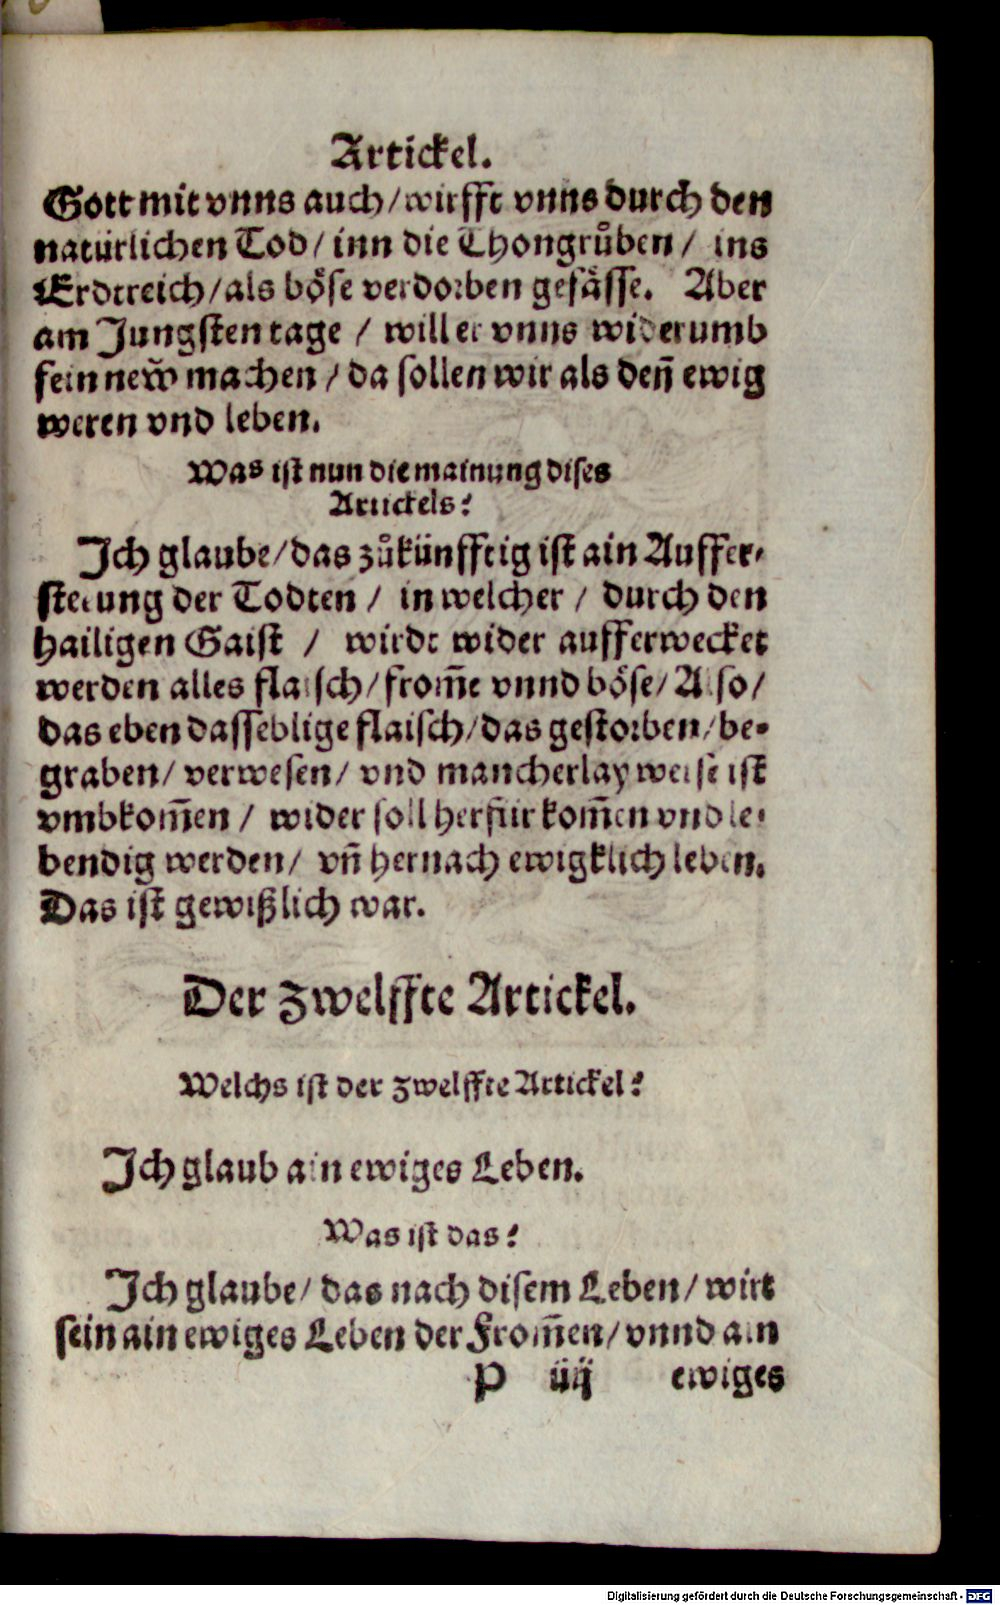 Artickel.
Gott mit vnns auch / wirfft vnns durch den
natürlichen Tod / inn die Thongruͦben / ins
Erdtreich / als böse verdorben gefässe. Aber
am Jungsten tage / will er vnns widerumb
fein new̃ machen / da sollen wir als deñ ewig
weren vnd leben.
Was ist nun die mainung dises
Artickels?
Ich glaube / das zuͦkünfftig ist ain Auffer-
steeung der Todten / in welcher / durch den
hailigen Gaist / wirdt wider aufferwecket
werden alles flaisch / from̃e vnnd böse / Also /
das eben dasseblige flaisch / das gestorben / be-
graben / verwesen / vnd mancherlay weise ist
vmbkom̃en / wider soll herfür kom̃en vnd le-
bendig werden / vñ hernach ewigklich leben.
Das ist gewißlich war.
Der zwelffte Artickel.
Welchs ist der zwelffte Artickel?
Ich glaub ain ewiges Leben.
Was ist das?
Ich glaube / das nach disem Leben / wirt
sein ain ewiges Leben der From̃en / vnnd ain
P iiij ewiges
Digitalisierung gefördert durch die Deutsche Forschungsgemeinschaft - DFG